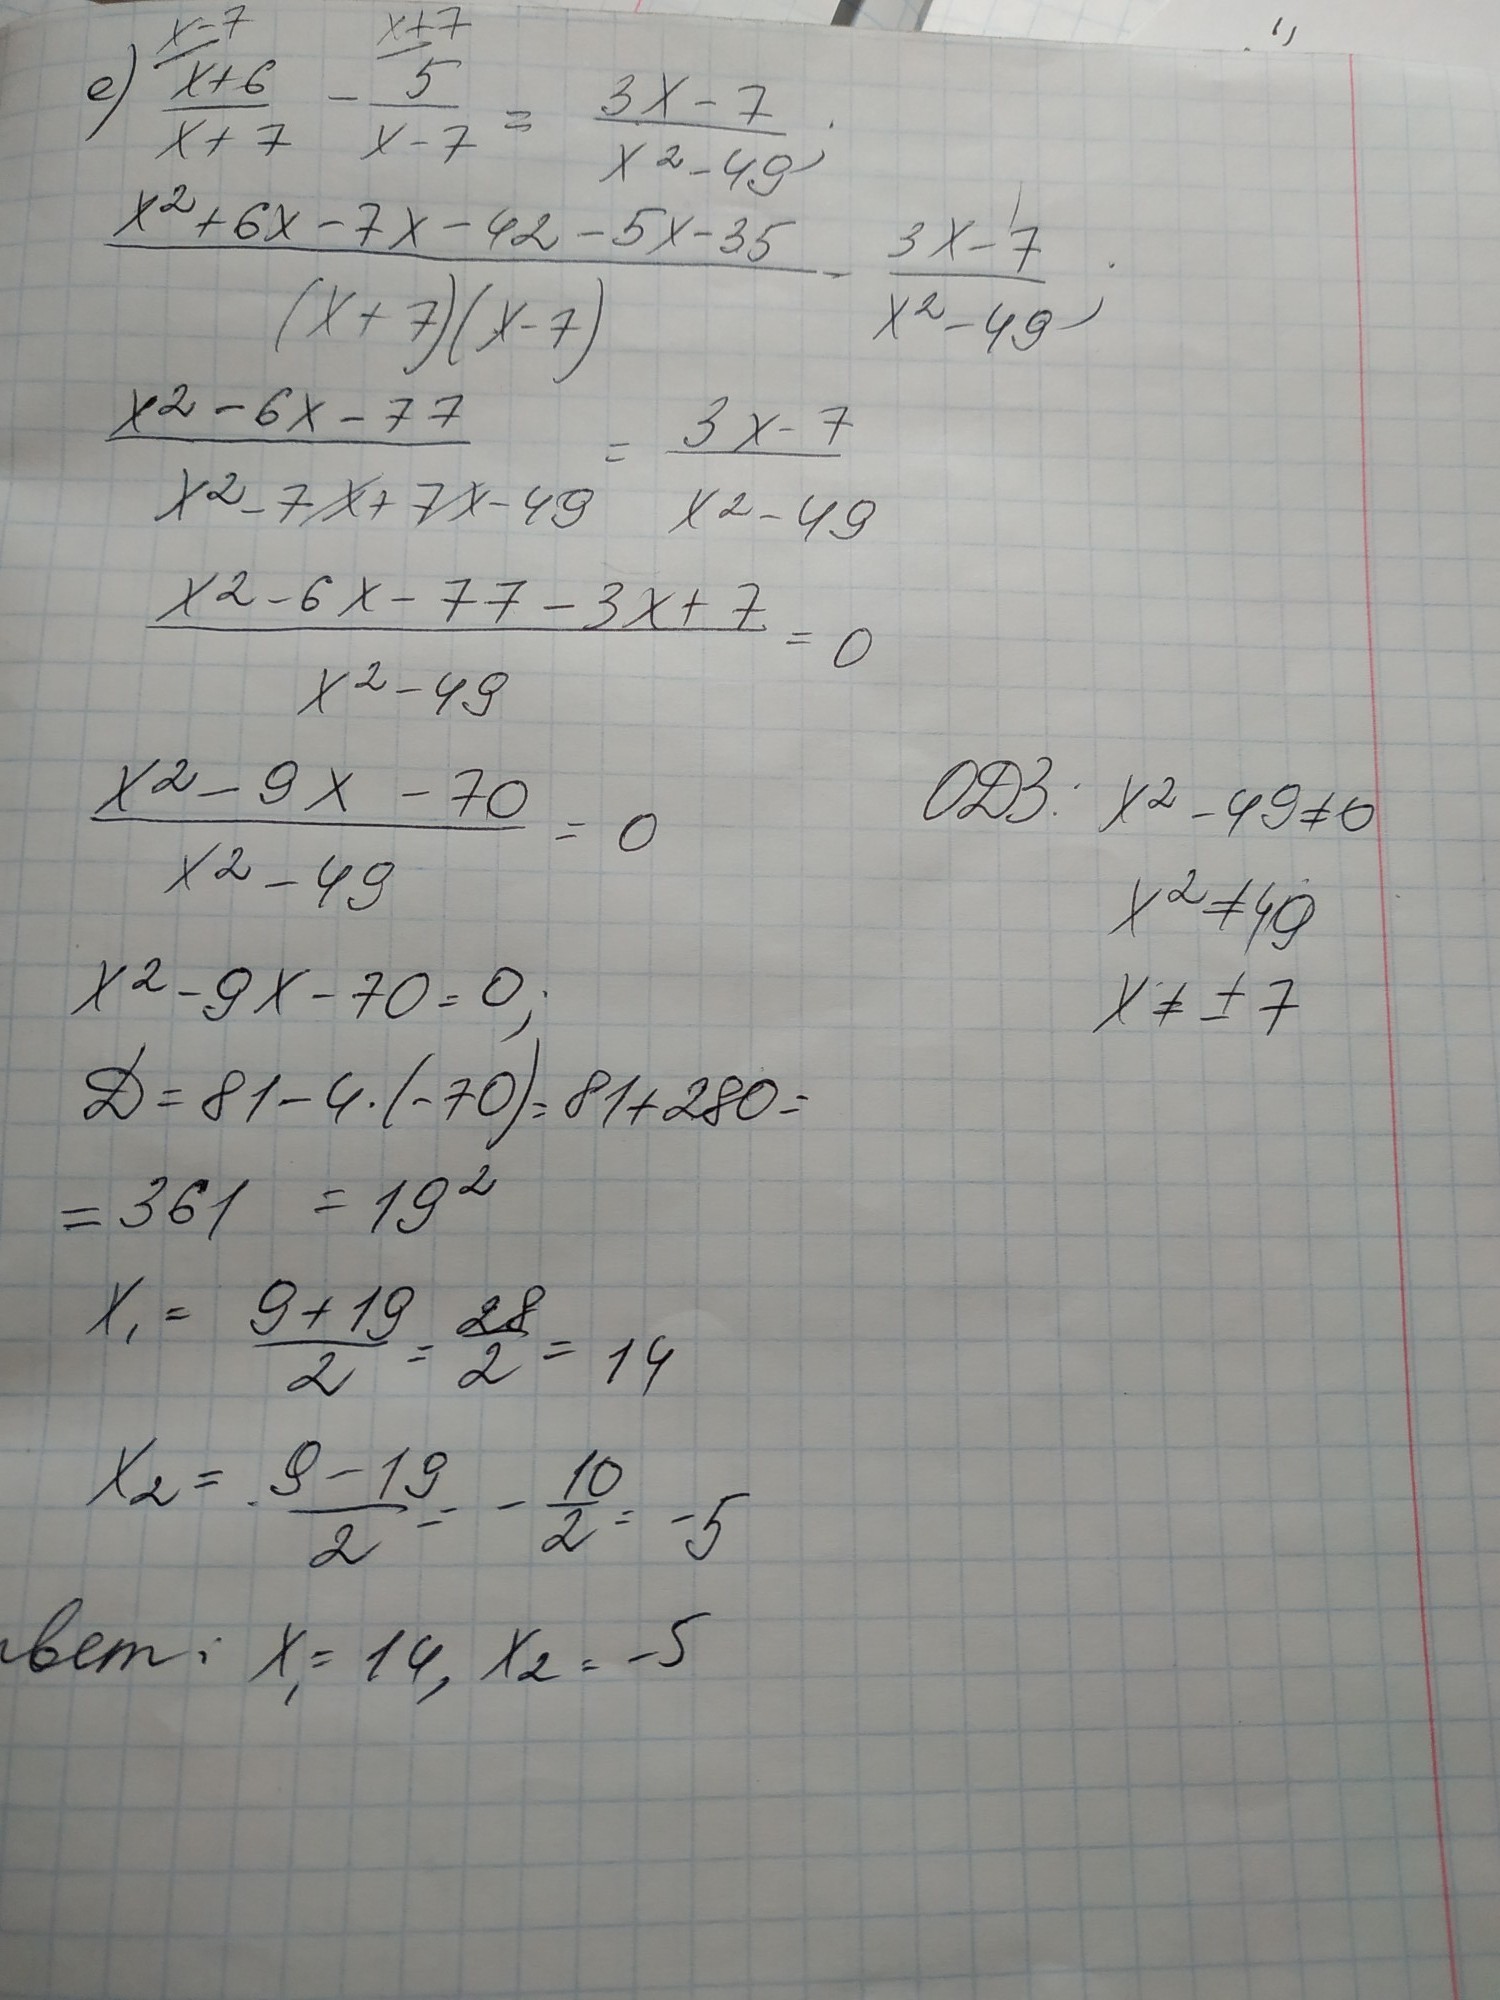 x-7 x+7
е) x+6/x+7 - 5/x-7 = 3x-7/x²-49;
x²+6x-7x-42-5x-35/(x+7)(x-7) - 3x-7/x²-49;
x²-6x-77/x²-7x+7x-49 = 3x-7/x²-49
x²-6x-77-3x+7/x²-49 = 0
x²-9x-70/x²-49 = 0
ОДЗ: x²-49≠0
x²≠49
x≠±7
x²-9x-70=0;
Д=81-4·(-70)=81+280=
=361 =19²
x₁= 9+19/2 = 28/2 = 14
x₂= 9-19/2 = -10/2 = -5
твет: x₁=14, x₂=-5